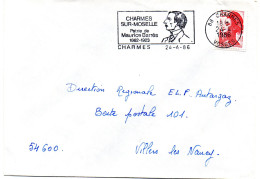 CHARMES
SUR-MOSELLE
Patrie de
Maurice Barrès
1862-1923
CHARMES 24-4-86
88 CHARMES
1986
Direction Régionale E.L.F. Antargaz
Boite postale 101.
54600. Villers les Nancy.